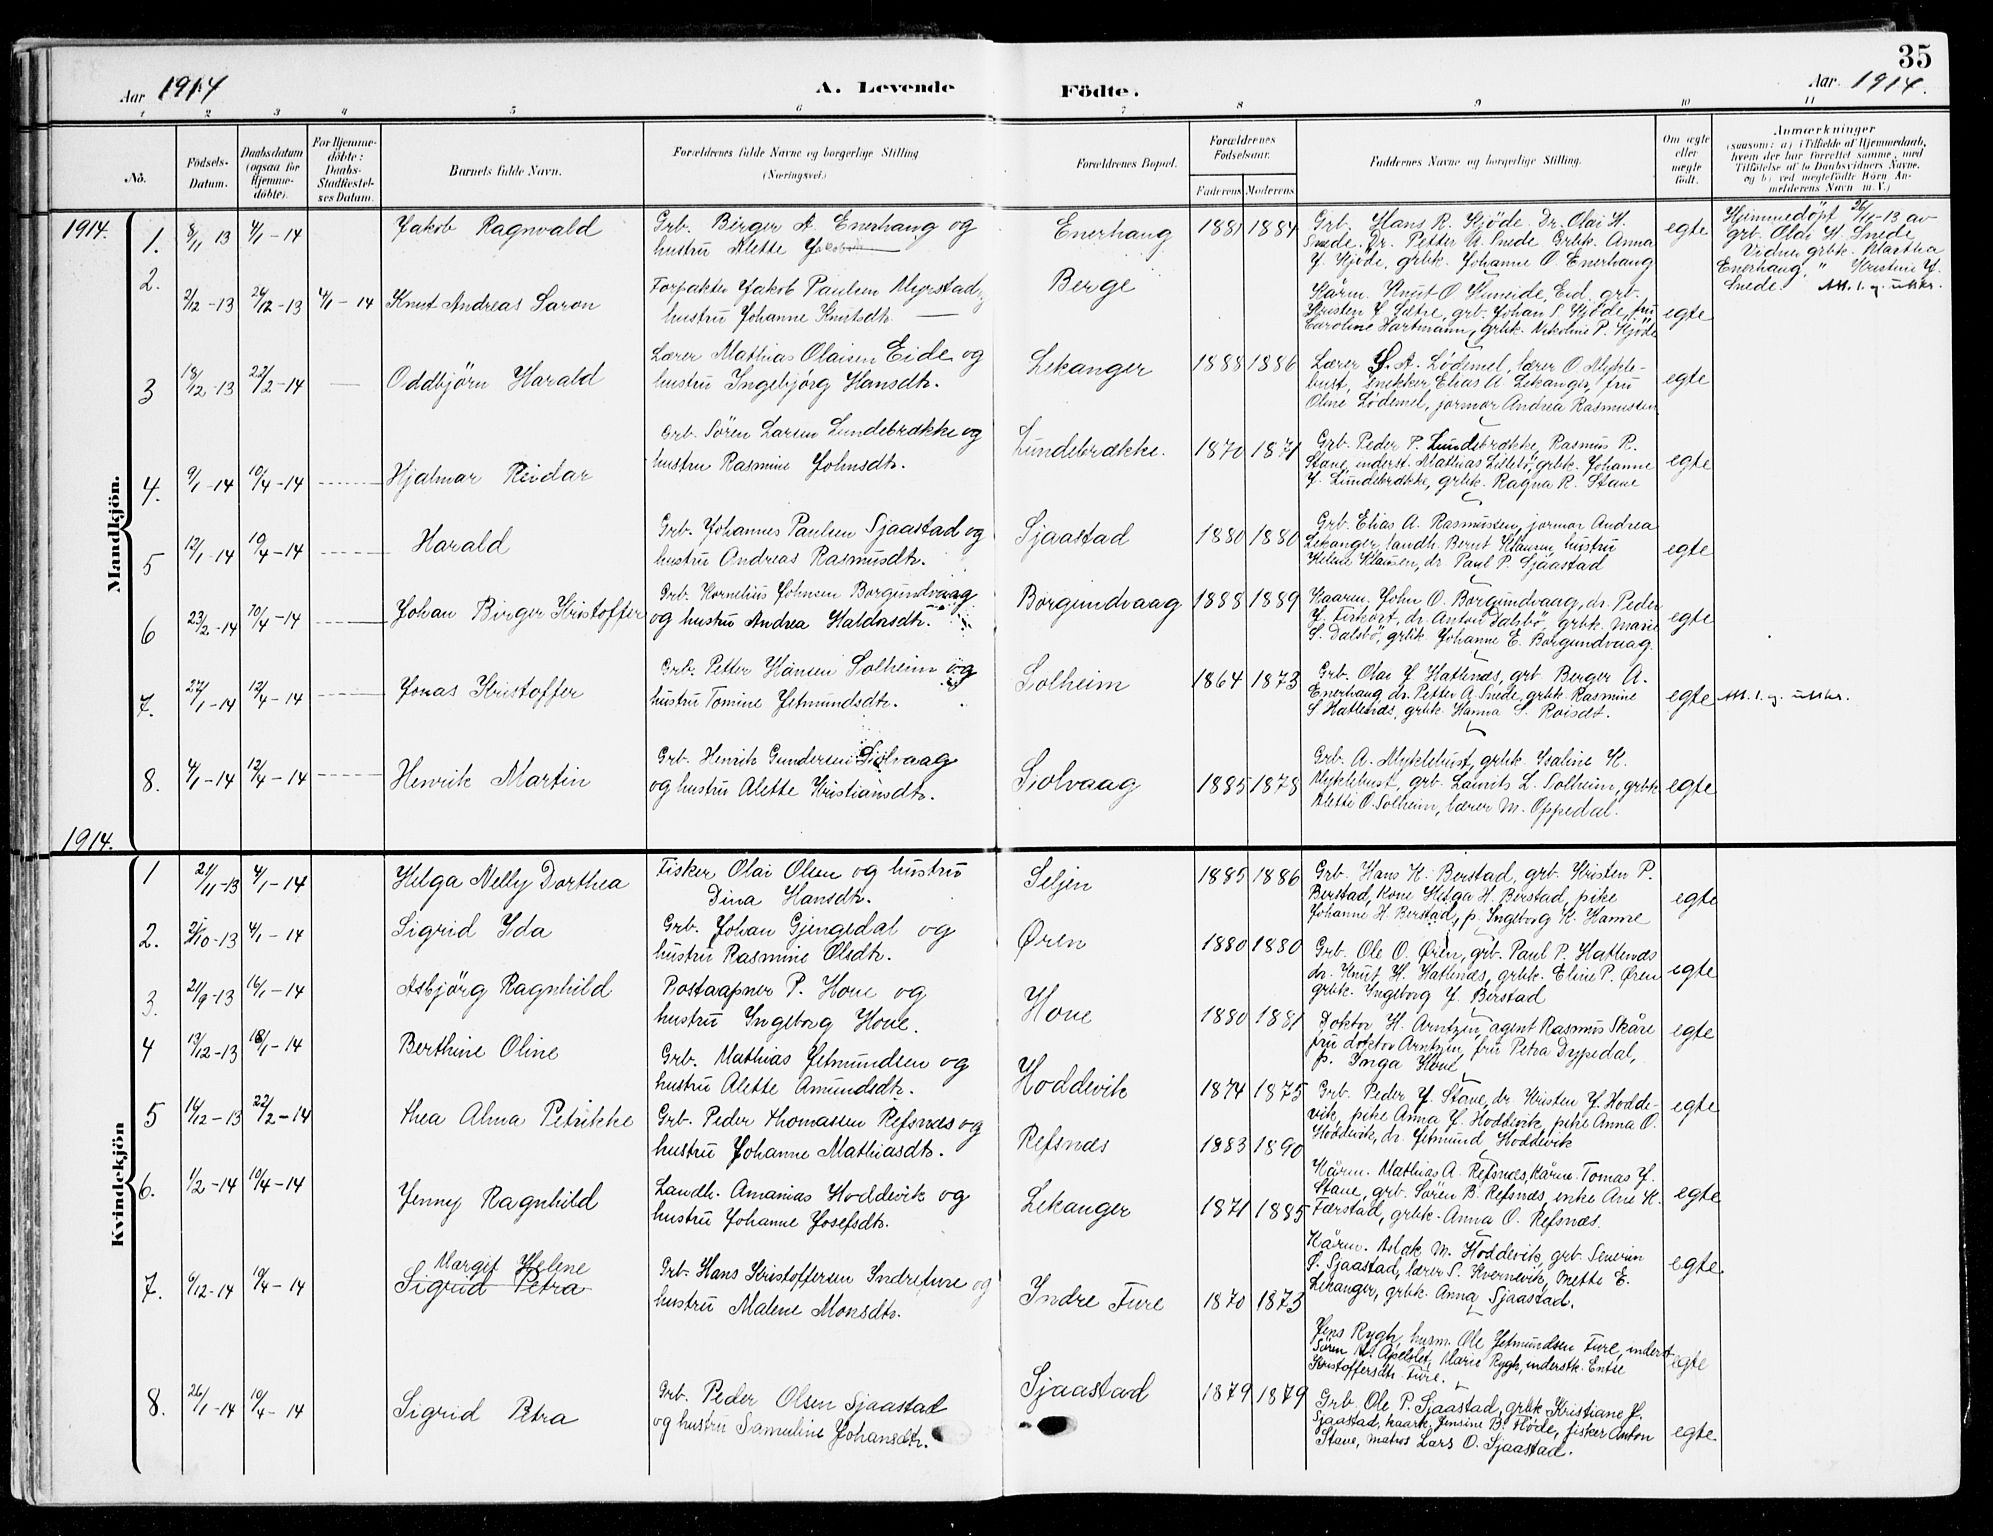 35
Aar 1914 A. Levende Födte. Aar 1914.
1 2 3 4 5 6 7 8 9 10 11
No. Födsels-Datum. Daabsdatum (ogsaa for Hjemme-döbte). For Hjemme-döbte: Daabs-Stadfæstel-ses Datum. Barnets fulde Navn. Forældrenes fulde Navne og borgerlige Stilling (Næringsvei.) Forældrenes Bopæl. Forældrenes Födselsaar. Faderens Moderens Faddernes Navne og borgerlige Stilling. Om ægte eller uægte födt. Anmærkninger
(saasom: a) i Tilfælde af Hjemmedaab,
hvem der har forrettet samme, med
Tilföielse af to Daabsvidners Navne,
og b) ved uægtefödte Börn An-
melderens Navn m. V.)
1914.
Mandkjön.
1. 8/11 13 4/1 - 14 Jakob Ragnvald
Grb. Birger A. Enerhaug og
hustru Alette
Enerhaug 1881 1884
Grb. Hans R. Hjöde. Dr. Olai H.
Snede. Dr. Petter A. Snede Grbk. Anna
J. Hjöde, grbk. Johanne O. Enerhaug
egte
Hjemmedöpt 26/11-13 av
grb. Olai H. Snede
Vidner grbk. Martha
Enerhaug, " Kristine J.
Snede. Att. l. g. utskr.
2. 2/12 - 13 26/12 - 13 4/1 - 14 Knut Andreas Saron
Forpakter Jakob Paulsen Myrestad
hustru Johanne Knutsdtr.
Berge
Kårm. Knut O Humeide, Eid. grb.
Kristen J Sætre, grb. Johan S. Hjöde, fru
Caroline Hartmann, grbk. Nikoline P. Hjöde
egte
3 18/12 - 13 22/2 - 14 Oddbjörn Harald
Lærer Mathias Olaisen Eide og
hustru Ingebjörg Hansdtr.
Lekanger 1888 1886
Lærer A. Lödemel, lærer O. Mykle-
bust, snekker Elias A Lekanger, fru
Oline Lödemel, jormor Andrea Rasmussen
egte
4. 9/1 - 14 10/4 - 14 Hjalmar Reidar
Grb. Sören Larsen Lundebrække og
hustru Rasmine Johnsdtr.
Lundebrække. 1870 1871
Grb. Peder P. Lundebrække, Rasmus R.
Stave, inderst. Mathias Lillebö, grbk. Johanne
J. Lundebrække, grbk. Ragna R. Stave
egte
5 12/1 - 14 10/4 - 14 Harald
Grb. Johannes Paulsen Sjaastad og
hustru Andreas Rasmusdtr.
Sjaastad 1880 1880
Grb. Elias A. Rasmussen, jormor Andrea
Lekanger, landh. Bernt Klausen, hustru
Helene Klausen, dr. Paul P. Sjaastad
egte
6 23/2 - 14 10/4 - 14 Johan Birger Kristoffer
Grb. Kornelius Johnsen Borgundvaag
og hustru Andrea Haldorsdtr.
Borgundvaag 1888 1889
Kaarm. John O. Borgundvaag, dr. Peder
J. Fiskört, dr. Anton Dalsbö, grbk. Marie
S. Dalsbö, grbk Johanne E. Borgundvaag
egte
7. 27/1 - 14 12/4 - 14 Jonas Kristoffer
Grb. Petter Hansen Solheim og
hustru Tomine Jetmundsdtr.
Solheim 1864 1873
Grb. Olai J Hatlenæs, grb Berger A.
Enerhaug dr. Petter A. Snede, grbk. Rasmine
S Hatlenæs, grbk. Hanna S. Roisdt.
egte Att. l. g. utskr.
8. 4/1 - 14 12/4 - 14 Henrik Martin
Grb. Henrik Gundersen Siolvaag
og hustru Alette Kristiansdtr.
Siolvaag 1885 1878
Grb. A. Myklebust, grbk. Isaline K.
Myklebust, grb. Laurits L. Solheim, grbk
Alette O. Solheim, lærer M. Oppedal.
egte
1914.
Kvindekjön
1 21/11-13 4/1 - 14 Helga Nelly Dorthea
Fisker Olai Olsen og hustru
Dina Hansdtr.
Seljen 1885 1886
Grb. Hans K. Berstad, grb. Kristen P.
Berstad, kone Helga H. Berstad, pike
Johanne H Berstad, p. Ingeborg K. Hamre
egte
2. 21/10-13 4/1 - 14 Sigrid Ida
Grb. Johan Gjengedal og
hustru Rasmine Olsdtr.
Øren 1880 1880
Grb. Ole O. Øren, grb. Paul P. Hatlenæs
dr. Knut H. Hatlenæs, grbk. Eline P. Øren
grbk. Ingeborg J. Berstad
egte
3. 21/9-13 16/1 - 14 Asbjörg Ragnhild
Postaapner P. Hove og
hustru Ingeborg Hove.
Hove 1880 1881
Doktor H. Arntzen, agent Rasmus Skåre
fru doktor Arntzen, fru Petra Dypedal,
p. Inga Hove
egte
4 13/12-13 18/1 - 14 Berthine Oline
Grb. Mathias Jetmundsen og
hustru Alette Amundsdtr.
Hoddevik 1874 1875
Grb. Peder J. Stave, dr. Kristen J. Hodde-
vik, pike Anna J. Hoddevik, pike Anna O.
Hoddevik, dr. Jetmund Hoddevik
egte
5 14/12-13 22/2 - 14 Thea Alma Petrikke
Grb. Peder Thomassen Refsnæs og
hustru Johanne Mathiasdtr.
Refsnæs 1883 1890
Kårm. Mathias A. Refsnæs, kårm. Tomas J.
Stave, grb. Sören B. Refsnæs, enke Ane K.
Færstad, grbk. Anna O. Refsnæs.
egte
6. 1/2 - 14 10/4 - 14 Jenny Ragnhild
Landh. Amanias Hoddevik og
hustru Johanne Josefsdtr.
Lekanger 1871 1885
Kårm. Aslak M. Hoddevik, grb. Severin
S. Sjaastad, lærer S. Kvernevik, Mette E.
Lekanger, grbk. Anna Sjaastad.
egte
7. 6/12 - 14 10/4 - 14 Margit Helene
Sigrid Petra
Grb. Hans Kristoffersen Indrefure og
hustru Malene Monsdtr.
Indre Fure 1870 1873
Jens Rygh, husm. Ole Jetmundsen Fure, inderst
Sören A. Apelset, Marie Rygh, inderstk. Entse
Kristoffersdtr Fure.
egte
8. 26/1 - 14 10/4 - 14 Sigrid Petra
Grb. Peder Olsen Sjaastad
og hustru Samuline Johansdtr.
Sjaastad 1879 1879
Grb. Ole P. Sjaastad, grbk Kristiane J.
Sjaastad, kaark. Jensine B. Höde, fisker Anton
Stave, matros Lars O. Sjaastad.
egte.